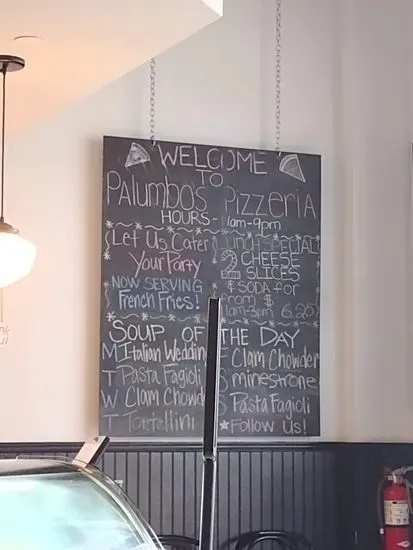 WELCOME
TO
Palumbo's Pizzeria
HOURS- 11am-9pm
Let Us Cater
Your Party
NOW SERVING
French Fries!
Lunch SPECIAL
2 CHEESE
SLICES
& SODA for
from $
11am-3pm 6.25
SOUP OF THE DAY
M Italian Wedding
T Pasta Fagioli
W Clam Chowd
T Tortellini
F Clam Chowder
S minestrone
S Pasta Fagioli
Follow us!